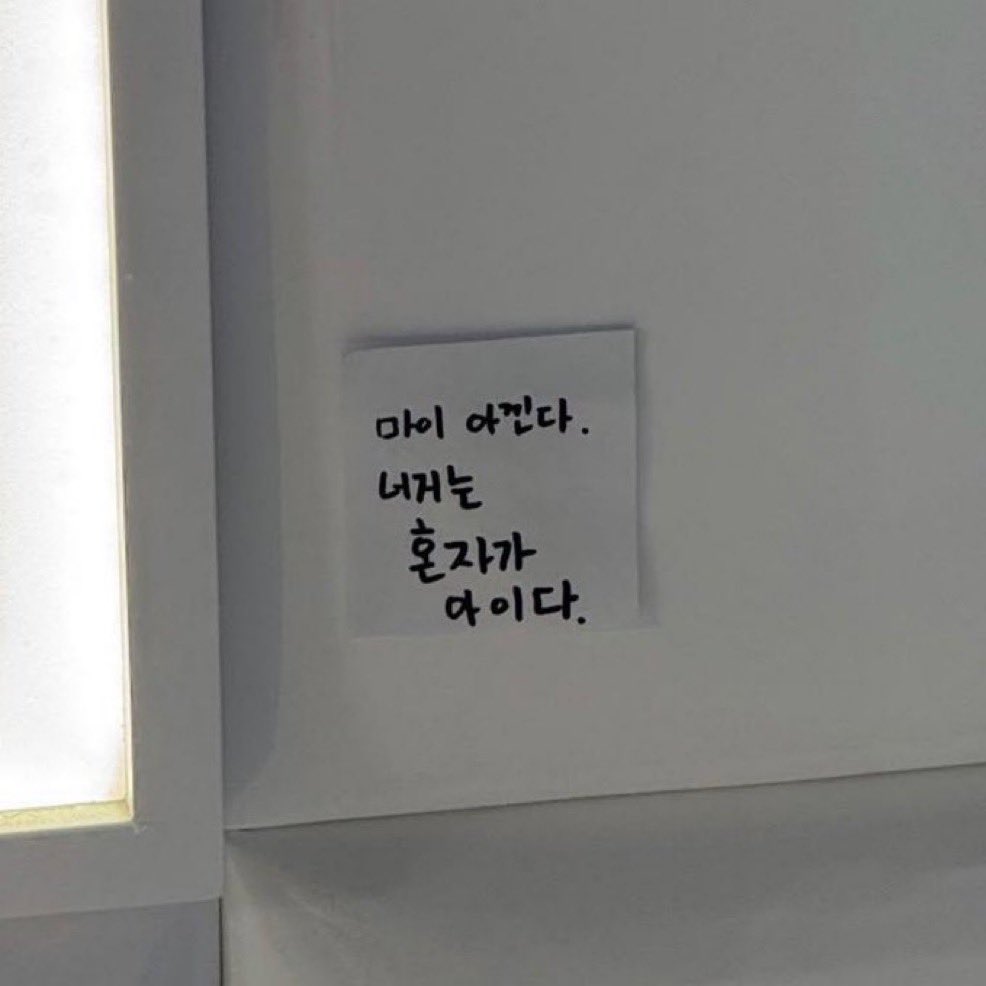 마이 아낀다.
너거는
혼자가
아이다.